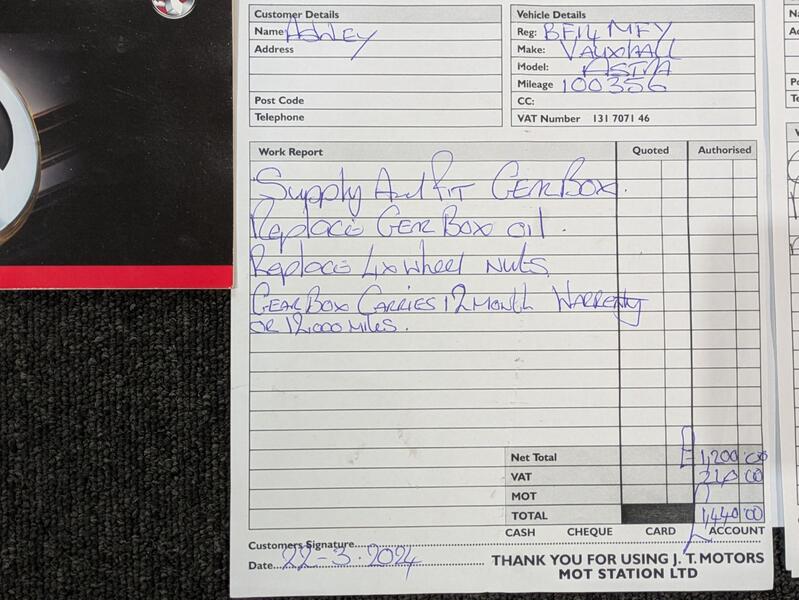 Customer Details
Name Ashley
Address
Post Code
Telephone
Vehicle Details
Reg: BF14 MFY
Make: VAUXHALL
Model: ASTRA
Mileage 100356
CC:
VAT Number 131 7071 46
Work Report Quoted Authorised
Supply And Fit GEARBOX.
Replace GEARBOX oil.
Replace 4x wheel Nuts.
GEARBOX CARRIES 12 MONTH WARRENTY
OR 12,000 MILES.
Net Total £1,200 00
VAT 240 00
MOT
TOTAL £1,440 00
CASH CHEQUE CARD ACCOUNT
Customers Signature
Date 22-3-2024
THANK YOU FOR USING J. T. MOTORS
MOT STATION LTD